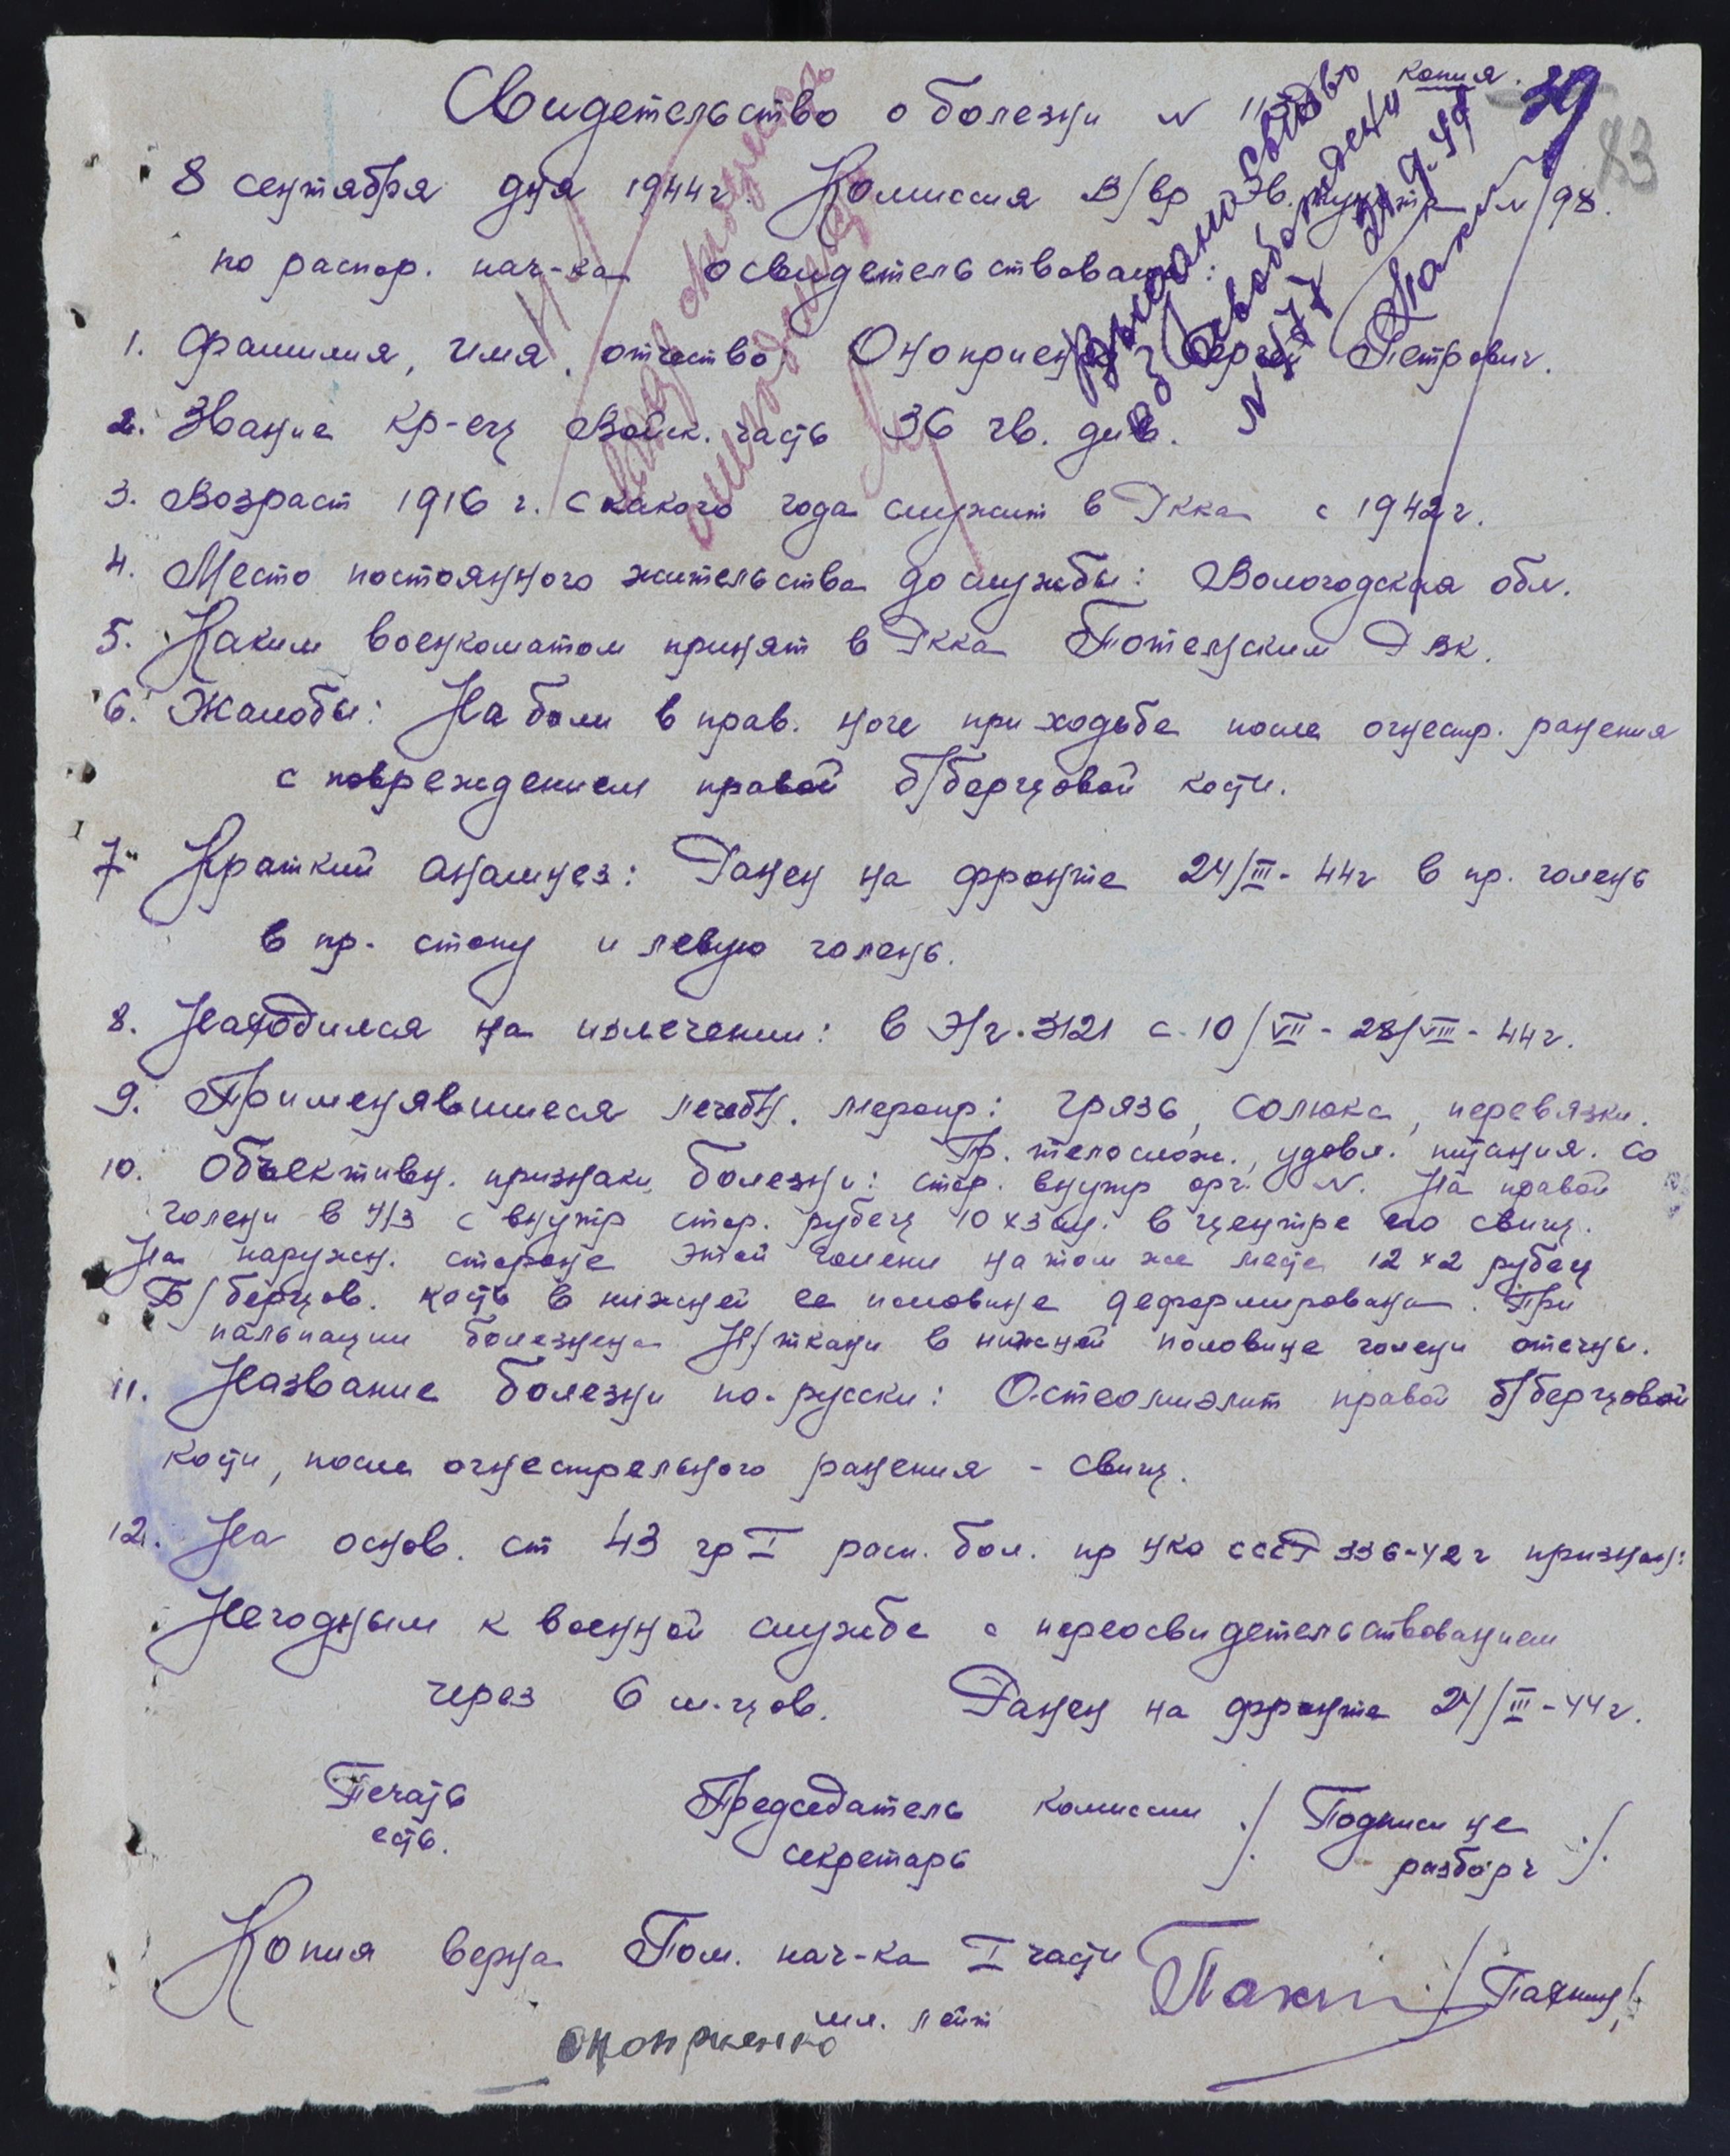 копия.
39
83
Свидетельство о болезни №
8 сентября дня 1944г. Комиссия В/вр Эв. пункта № 98.
по распор. нач-ка освидетельствован:
1. Фамилия, Имя, отчество Оноприенко Сергей Петрович.
2. Звание кр-ец Войск. часть 36 гв. див.
3. Возраст 1916 г. С какого года служит в Ркка с 1942г.
4. Место постоянного жительства до службы: Вологодская обл.
5. Каким военкоматом принят в Ркка Тотемским РВК.
6. Жалобы: На боли в прав. ноге при ходьбе после огнестр. ранения
с повреждением правой б/берцовой кости.
7. Краткий анамнез: Ранен на фронте 24/III-44г в пр. голень
в пр. стопу и левую голень.
8. Находился на излечении: в Э/г. 3121 с 10/VII - 28/VIII - 44г.
9. Применявшиеся лечебн. меропр: грязь, солюкс, перевязки.
10. Объективн. признаки болезни: Пр. телослож., удовл. питания. Со
стор. внутр орг. N. На правой
голени в н/3 с внутр стор. рубец 10х3 см. в центре его свищ.
На наружн. стороне этой голени на том же месте 12х2 рубец
Б/берцов. кость в нижней ее половине деформирована. При
пальпации болезнена М/ткани в нижней половине голени отечны.
11. Название болезни по-русски: Остеомиэлит правой б/берцовой
кости, после огнестрельного ранения - свищ.
12. На основ. ст 43 гр I расп. бол. пр НКО СССР 336-42г признан:
Негодным к военной службе с переосвидетельствованием
через 6 м-цов. Ранен на фронте 24/III-44г.
Печать
есть.
Председатель комиссии
секретарь
/Подписи не
разборч/
Копия верна Пом. нач-ка I части
мл. лейт
Оноприенко
Выдано свид-во
об освобождении
21.9.44